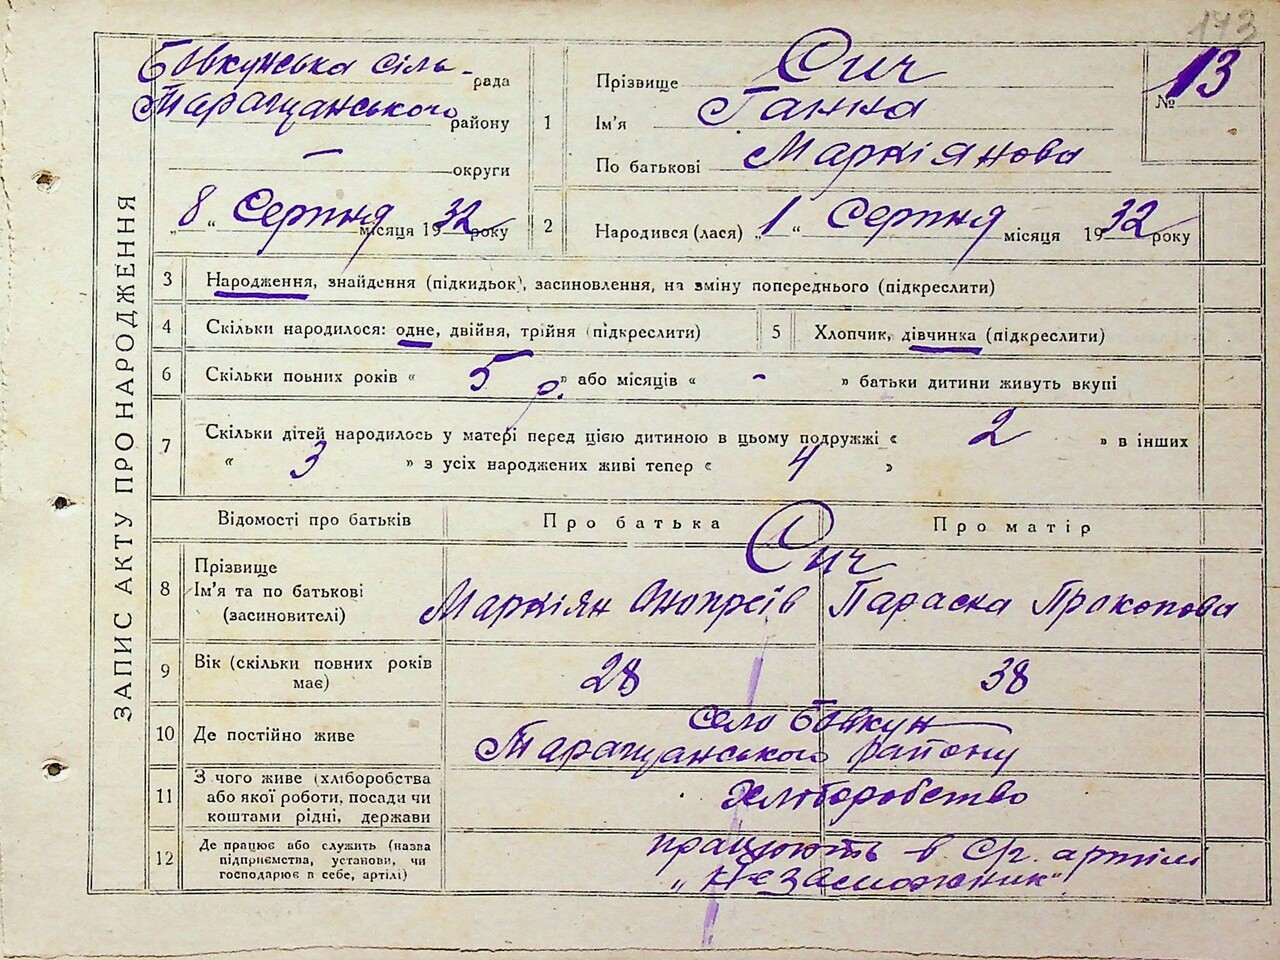 173
Бовкунська сіль-рада
Таращанського району
— округи
„8“ Серпня місяця 1932 року
ЗАПИС АКТУ ПРО НАРОДЖЕННЯ
1 Прізвище Сич
Ім'я Ганна
По батькові Маркіянова
№ 13
2 Народився (лася) „1“ Серпня місяця 1932 року
3 Народження, знайдення (підкидьок), засиновлення, на зміну попереднього (підкреслити)
4 Скільки народилося: одне, двійня, трійня (підкреслити)
5 Хлопчик, дівчинка (підкреслити)
6 Скільки повних років « 5 р. » або місяців « - » батьки дитини живуть вкупі
7 Скільки дітей народилось у матері перед цією дитиною в цьому подружжі « 2 » в інших
« 3 » з усіх народжених живі тепер « 4 »
Відомості про батьків Про батька Про матір
8 Прізвище
Ім'я та по батькові
(засиновителі)
Сич
Маркіян Онопреів Параска Прокопова
9 Вік (скільки повних років
має)
28 38
10 Де постійно живе
село Бовкун
Таращанського району
11 З чого живе (хліборобства
або якої роботи, посади чи
коштами рідні, держави
Хліборобство
12 Де працює або служить (назва
підприємства, установи, чи
господарює в себе, артілі)
працюють в С/г. артілі
„Незаможник“